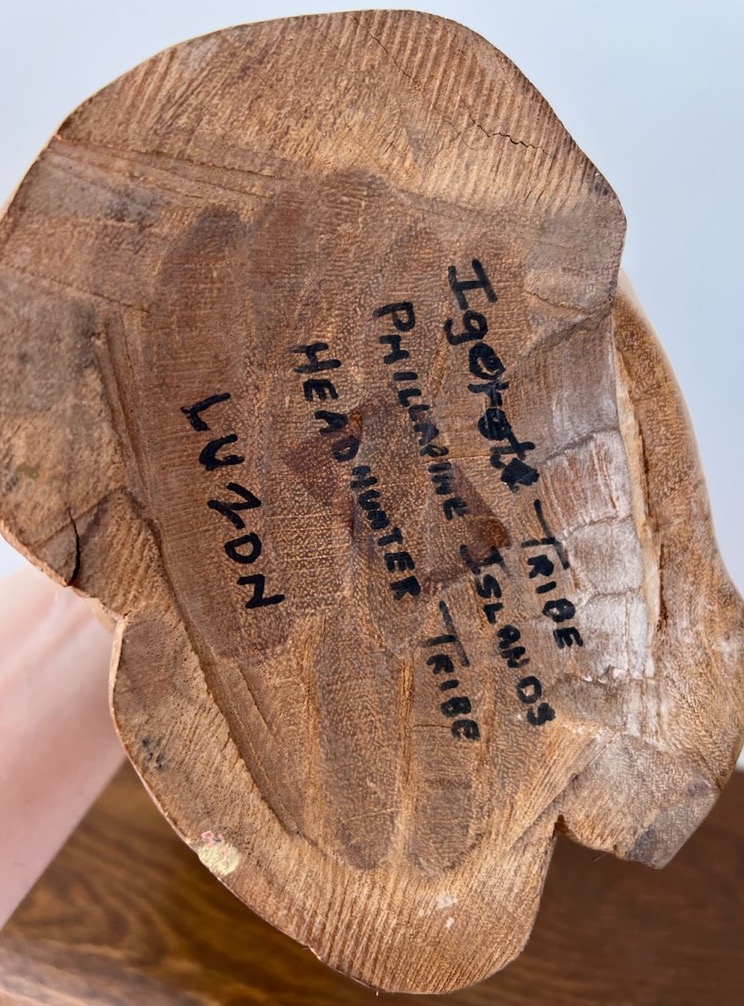 Igorote - TRIBE
PHILLAPINE ISLANDS
HEADHUNTER - TRIBE
LUZON